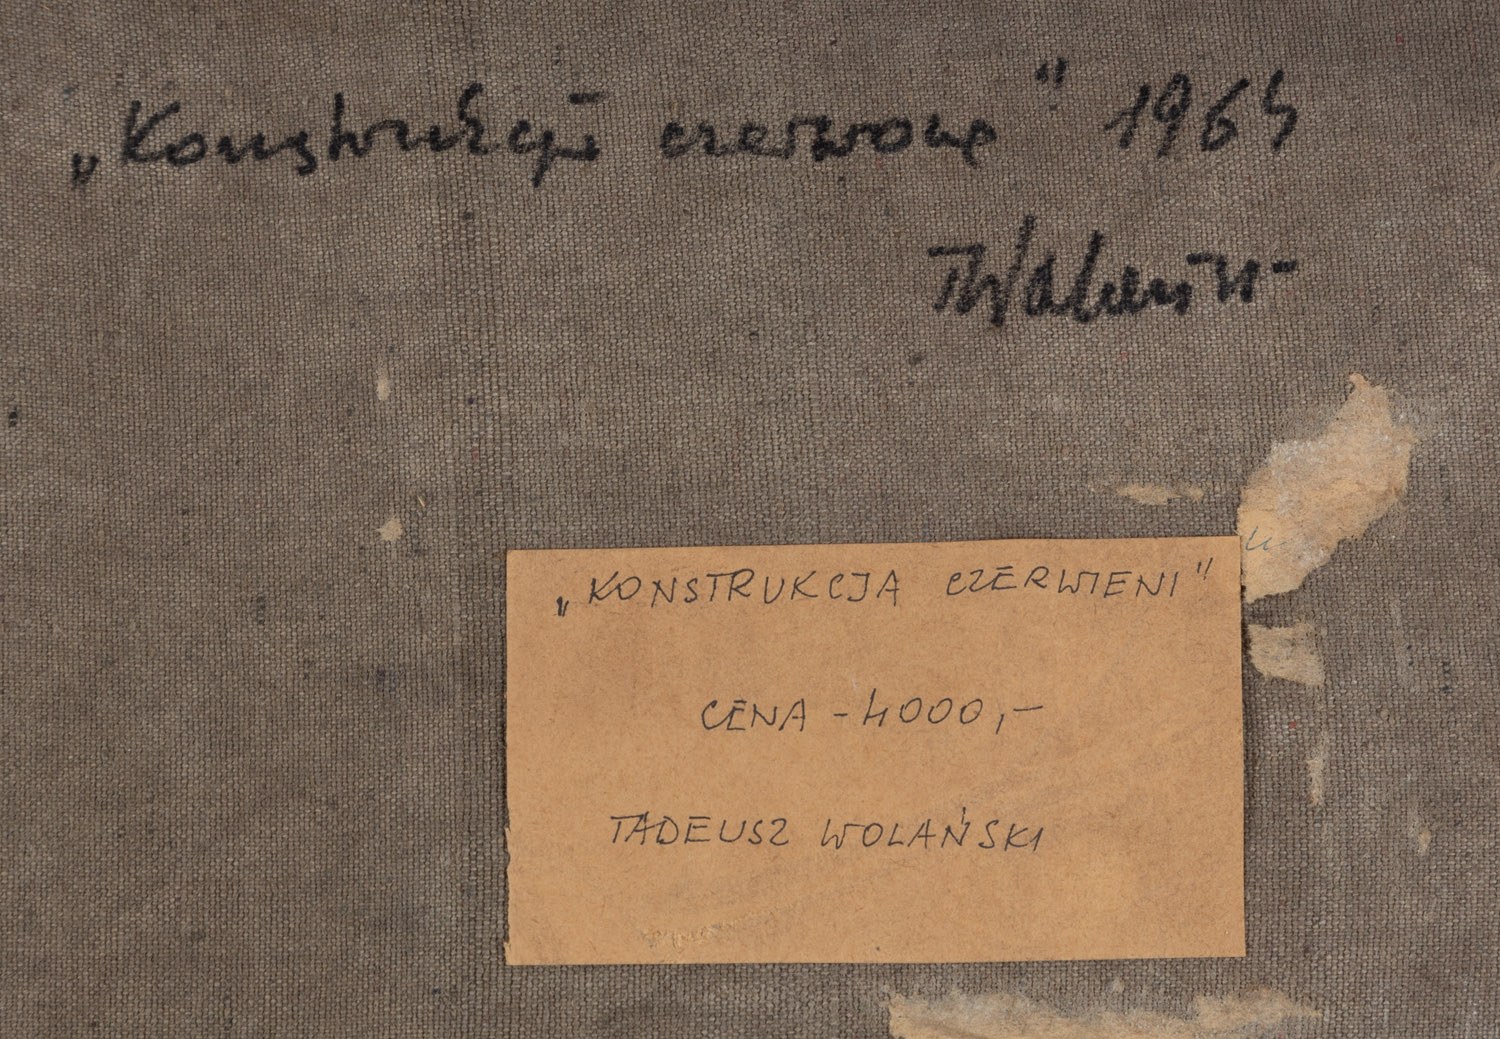 „Konstrukcja czerwona" 1964
TWolański
„KONSTRUKCJA CZERWIENI"
CENA - 4000,-
TADEUSZ WOLAŃSKI